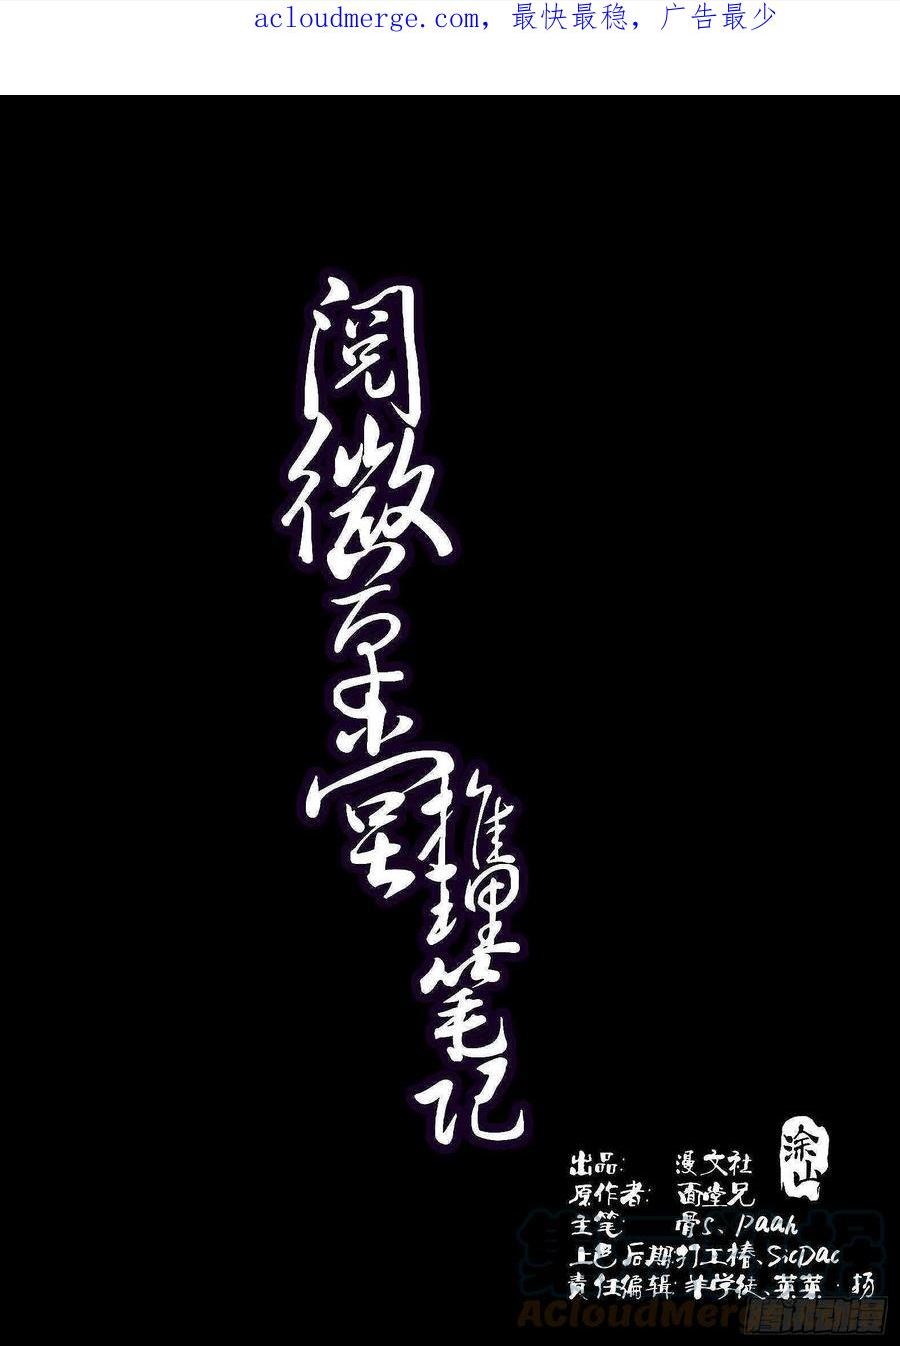 acloudmerge.com, 最快最稳，广告最少
阅微草堂
推理笔记
涂山
出品: 漫文社
原作者: 面堂兄
主笔: 骨S、paah
上色后期:打工椿、SicDac
責任编辑:羊学徒、菜菜·扬
AcloudMerge.com
腾讯动漫